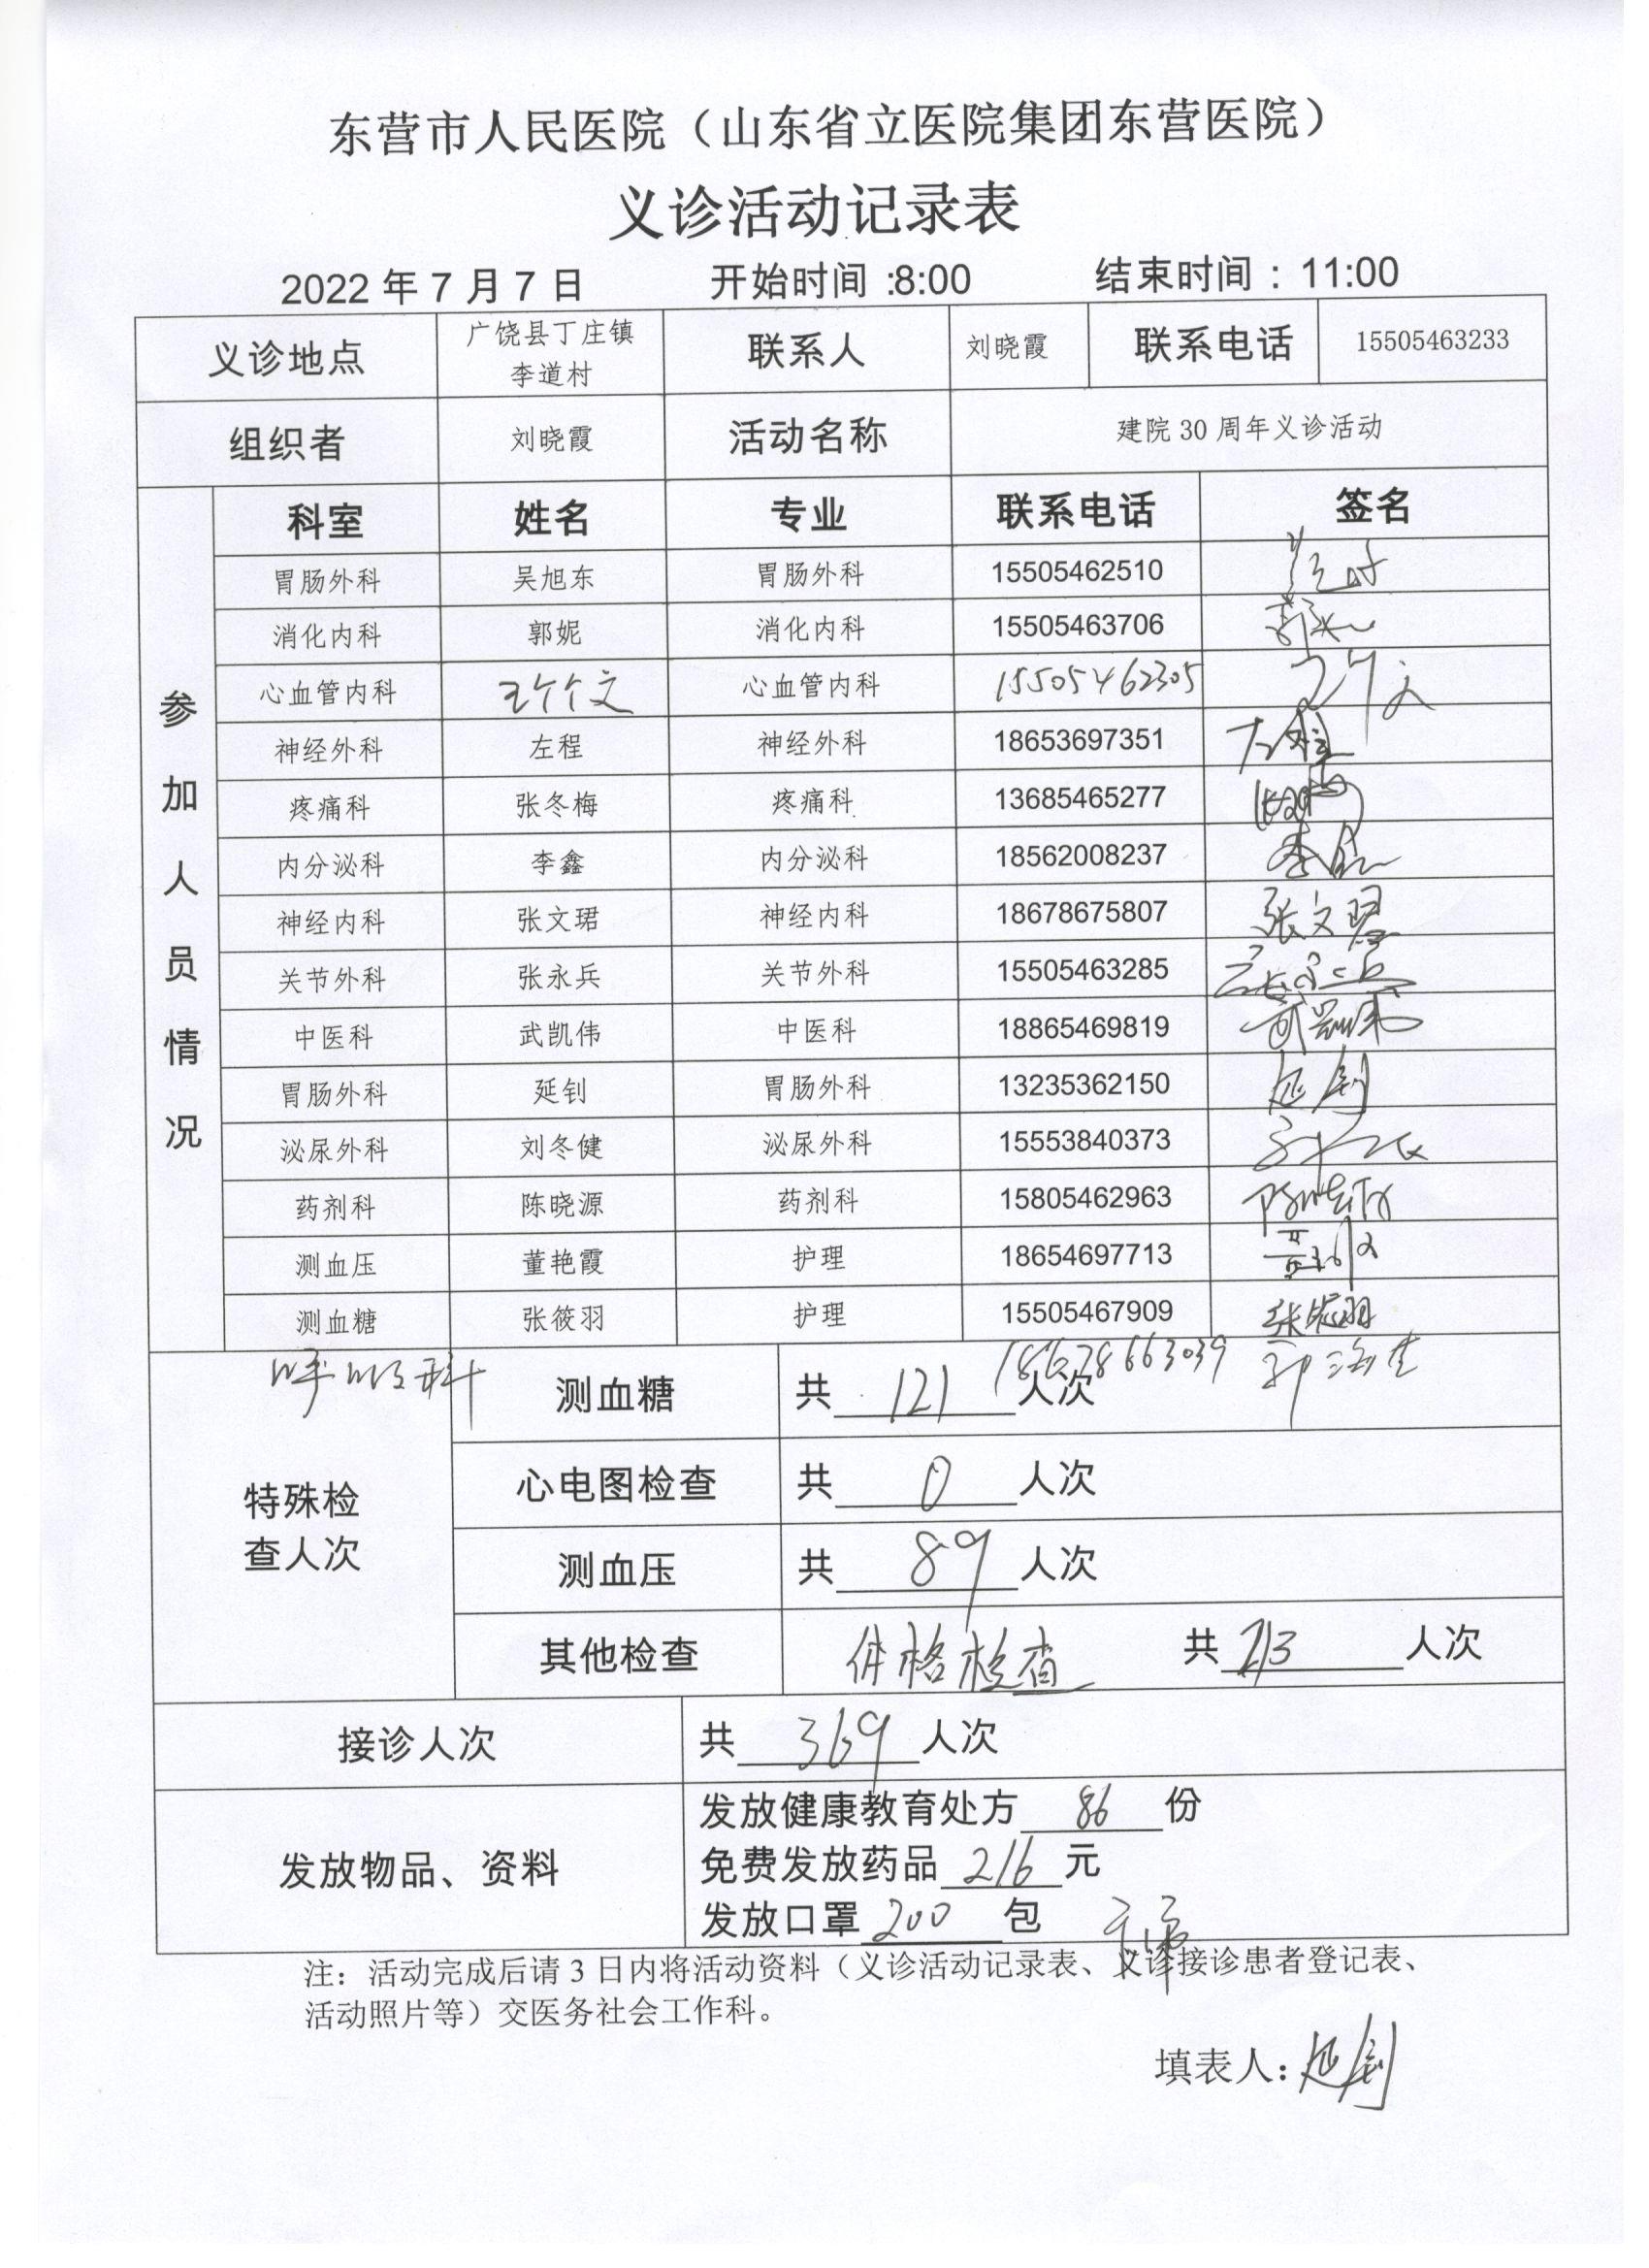 东营市人民医院（山东省立医院集团东营医院）
义诊活动记录表
2022 年 7 月 7 日 开始时间 :8:00 结束时间 : 11:00
义诊地点 广饶县丁庄镇李道村 联系人 刘晓霞 联系电话 15505463233
组织者 刘晓霞 活动名称 建院 30 周年义诊活动
参加人员情况
科室 姓名 专业 联系电话 签名
胃肠外科 吴旭东 胃肠外科 15505462510
消化内科 郭妮 消化内科 15505463706
心血管内科 心血管内科 15505462305
神经外科 左程 神经外科 18653697351 左程
疼痛科 张冬梅 疼痛科 13685465277
内分泌科 李鑫 内分泌科 18562008237 李鑫
神经内科 张文珺 神经内科 18678675807 张文珺
关节外科 张永兵 关节外科 15505463285 张永兵
中医科 武凯伟 中医科 18865469819 武凯伟
胃肠外科 延钊 胃肠外科 13235362150 延钊
泌尿外科 刘冬健 泌尿外科 15553840373
药剂科 陈晓源 药剂科 15805462963 陈晓源
测血压 董艳霞 护理 18654697713 董艳霞
测血糖 张筱羽 护理 15505467909 张筱羽
呼吸科 18678663039
特殊检查人次
测血糖 共 121 人次
心电图检查 共 0 人次
测血压 共 89 人次
其他检查 体格检查 共 213 人次
接诊人次 共 369 人次
发放物品、资料
发放健康教育处方 86 份
免费发放药品 216 元
发放口罩 200 包
注：活动完成后请 3 日内将活动资料（义诊活动记录表、义诊接诊患者登记表、
活动照片等）交医务社会工作科。
填表人: 延钊